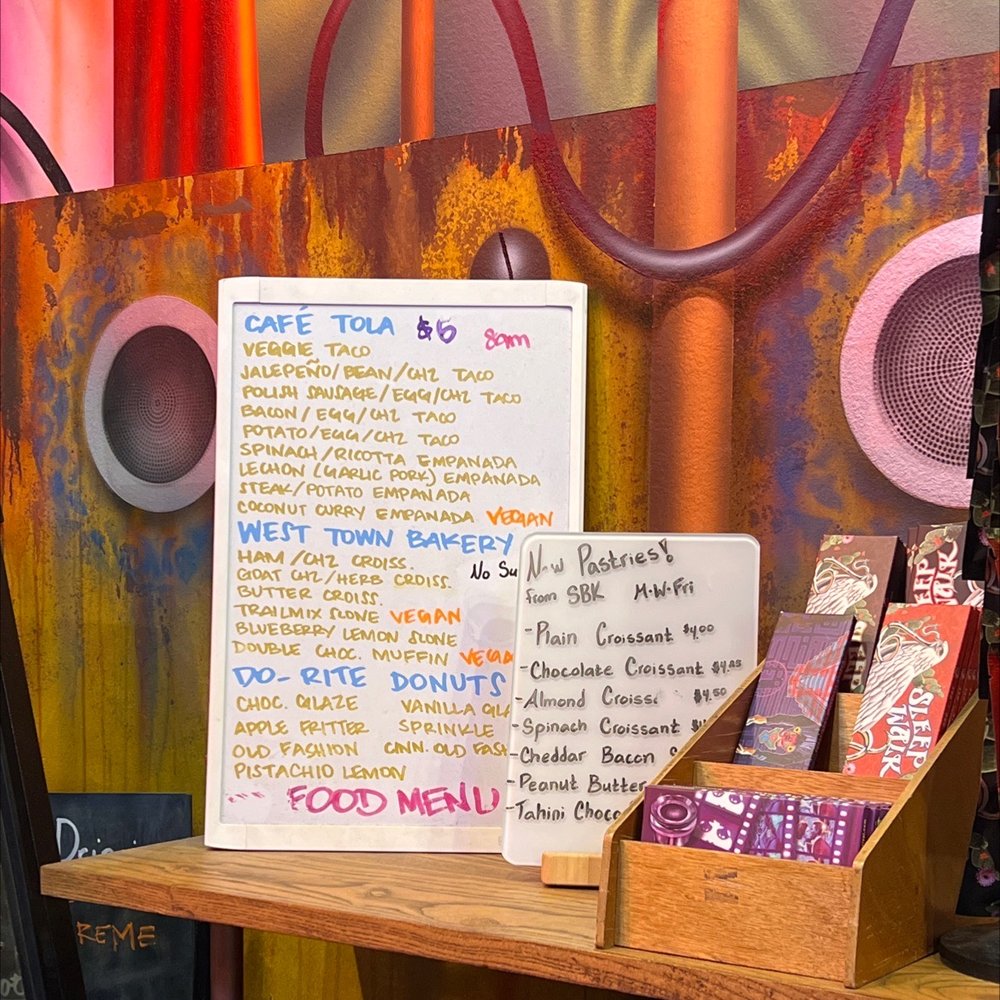 CAFÉ TOLA $5 8am
VEGGIE TACO
JALEPEÑO/BEAN/CHZ TACO
POLISH SAUSAGE/EGG/CHZ TACO
BACON/EGG/CHZ TACO
POTATO/EGG/CHZ TACO
SPINACH/RICOTTA EMPANADA
LECHON (GARLIC PORK) EMPANADA
STEAK/POTATO EMPANADA
COCONUT CURRY EMPANADA VEGAN
WEST TOWN BAKERY
HAM/CHZ CROISS. No Su
GOAT CHZ/HERB CROISS.
BUTTER CROISS.
TRAILMIX SCONE VEGAN
BLUEBERRY LEMON SCONE
DOUBLE CHOC. MUFFIN VEGA
DO-RITE DONUTS
CHOC. GLAZE VANILLA GLA
APPLE FRITTER SPRINKLE
OLD FASHION CINN. OLD FASH
PISTACHIO LEMON
FOOD MENU
New Pastries!
from SBK M·W·Fri
-Plain Croissant $4.00
-Chocolate Croissant
-Almond Croiss $4.50
-Spinach Croissant
-Cheddar Bacon
-Peanut Butter
-Tahini Choco
SLEEP
WALK
SLEEP
WALK
REME